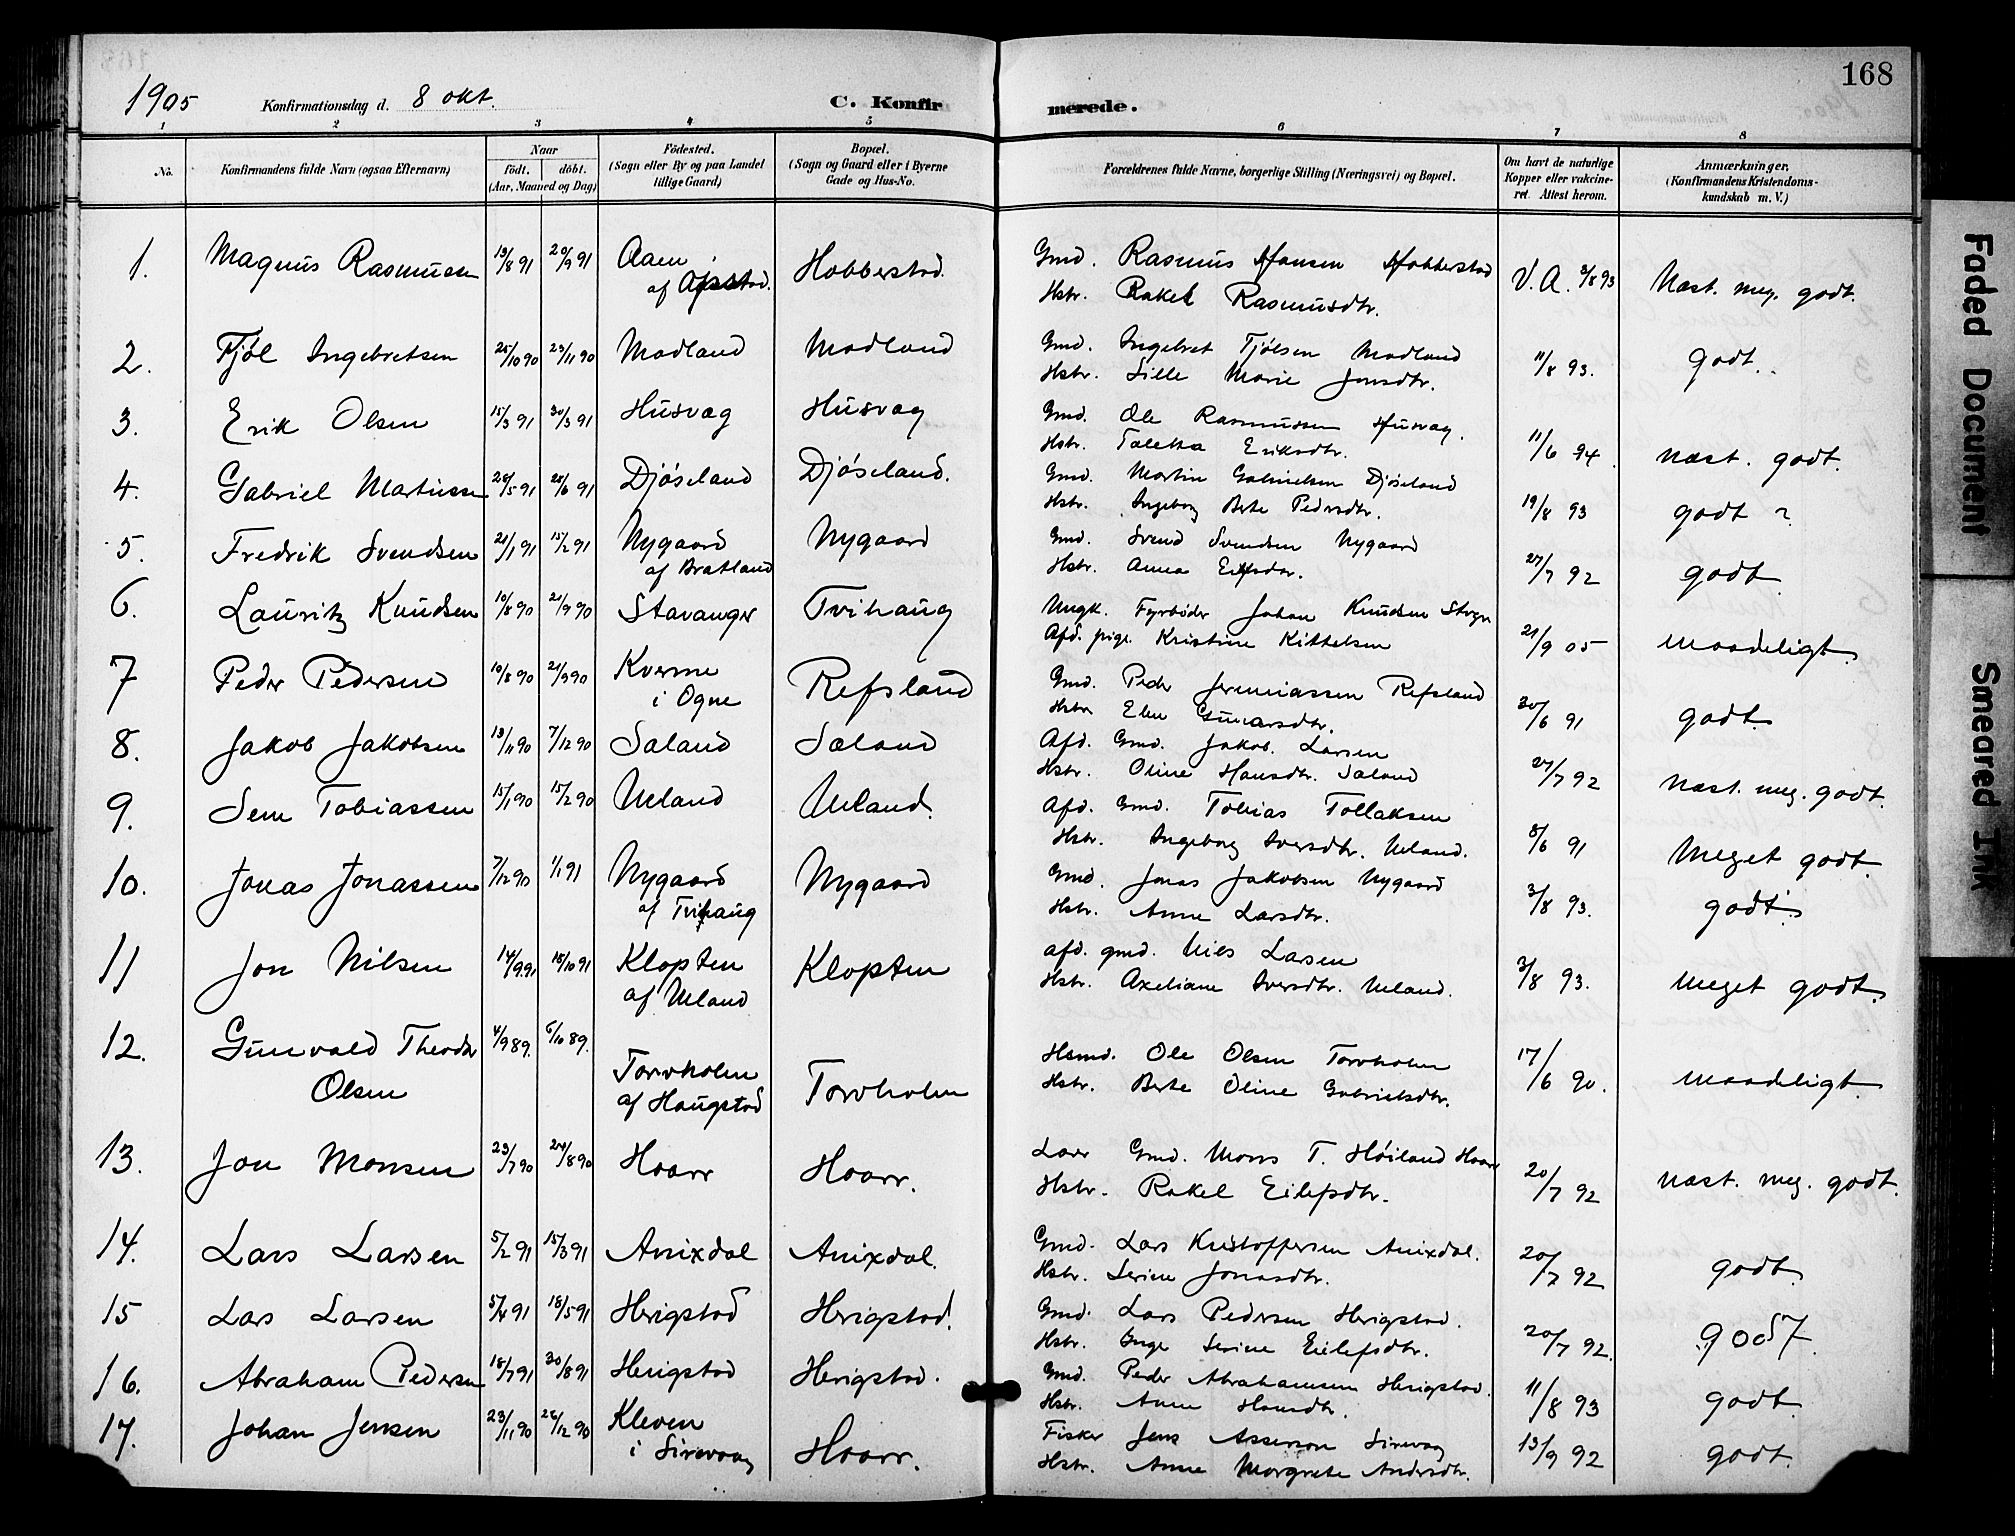 168
1905 Konfirmationsdag d. 8 okt. C. Konfirmerede.
1 2 3 4 5 6 7 8
No. Konfirmandens fulde Navn (ogsaa Efternavn) Naar født. døbt. (Aar, Maaned og Dag) Fødested. (Sogn eller By og paa Landet tillige Gaard) Bopæl. (Sogn og Gaard eller i Byerne Gade og Hus-No. Forældrenes fulde Navne, borgerlige Stilling (Næringsvei) og Bopæl. Om havt de naturlige Kopper eller vakcineret. Attest herom. Anmærkninger. (Konfirmandens Kristendomskundskab m. V.)
1. Magnus Rasmussen 19/8 91 20/9 91 Aaen Hobberstad. Gmd. Rasmus Hansen Hobberstad V.A. 3/8 93 Næst. meg. godt.
af Ogsstad. Hstr. Rakel Rasmusdtr.
2. Tjøl Ingebretsen 25/10 90 23/11 90 Modland Modland Gmd. Ingebret Tjølsen Modland 11/8 93. godt.
Hstr. Sille Marie Jonsdtr.
3. Erik Olsen 15/3 91 30/3 91 Husvag Husvag Gmd. Ole Rasmussen Husvag. 11/6 94 næst. godt.
Hstr. Taletta Eriksdtr.
4. Gabriel Martinssen 28/5 91 28/6 91 Djøseland Djøseland. Gmd. Martin Gabrielsen Djøseland 19/8 93 godt ?
Hstr. Ingeborg Berte Pedersdtr.
5. Fredrik Svendsen 21/1 91 15/2 91 Nygaard Nygaard Gmd. Svend Svendsen Nygaard 27/7 92 godt
af Bratland Hstr. Anna
6. Lauritz Knudsen 10/8 90 21/9 90 Stavanger Tvihaug Ungk. Fyrbøder Johan Knudsen Stvgr 21/9 05 maadeligt.
Afd. pige Kristine Kittelsen
7 Peder Pedersen 10/8 90 21/9 90 Kverme Refsland Gmd. Peder Jermiassen Refsland 30/6 91 godt
i Ogne Hstr Elen Gunarsdtr.
8. Jakob Jakobsen 13/11 90 7/12 90 Sæland Sæland Afd. Gmd. Jakob Larsen 27/7 92 næst. meg. godt.
Hstr. Oline Hansdtr. Sæland
9. Sem Tobiassen 15/1 90 15/2 90 Ueland Ueland. Afd. Gmd. Tobias Tollaksen 8/6 91 Meget godt.
Hstr. Ingeborg Iversdtr. Ueland.
10. Jonas Jonassen 7/12 90 1/1 91 Nygaard Nygaard Gmd. Jonas Jakobsen Nygaard 3/8 93. godt.
af Tvihaug Hstr. Anne Larsdtr.
11 Jon Nilsen 14/9 91 18/10 91 Klopten Klopten afd. gmd. Niels Larsen 3/8 93. meget godt.
af Ueland Hstr. Axeliane Iversdtr. Ueland.
12. Gunvald Theodor 4/9 89. 6/10 89. Torvholm Torvholm Hsmd. Ole Olsen Torvholm 17/6 90. maadeligt.
Olsen af Haugstad Hstr. Berte Oline Gabrielsdtr.
13. Jon Monsen 23/7 90 24/8 90 Hoarr Hoarr. Gmd. Mons T. Høiland Hoarr 20/7 92 næst. meg. godt.
Hstr. Rakel Eilefsdtr.
14. Lars Larsen 5/2 91 15/3 91 Anixdal Anixdal. Gmd. Lars Kristoffersen Anixdal. 20/7 92 godt
Hstr. Serine Jonasdtr.
15 Lars Larsen 5/4 91 18/5 91 Herigstad Herigstad. Gmd. Lars Pedersen Herigstad. 20/7 92. godt
Hstr. Inger Serine Eilefsdtr.
16. Abraham Pedersen 18/7 91 30/8 91 Herigstad Herigstad. Gmd. Peder Abrahamsen Herigstad. 11/8 93 godt
Hstr. Anne Hansdtr.
17. Johan Jensen 23/11 90 26/12 90 Kleven Hoarr. Fisker Jens Asserson Sirevog 13/9 92 godt.
i Sirevaag Hstr. Anne Margrete Andersdtr.
Faded Document
Smeared Ink